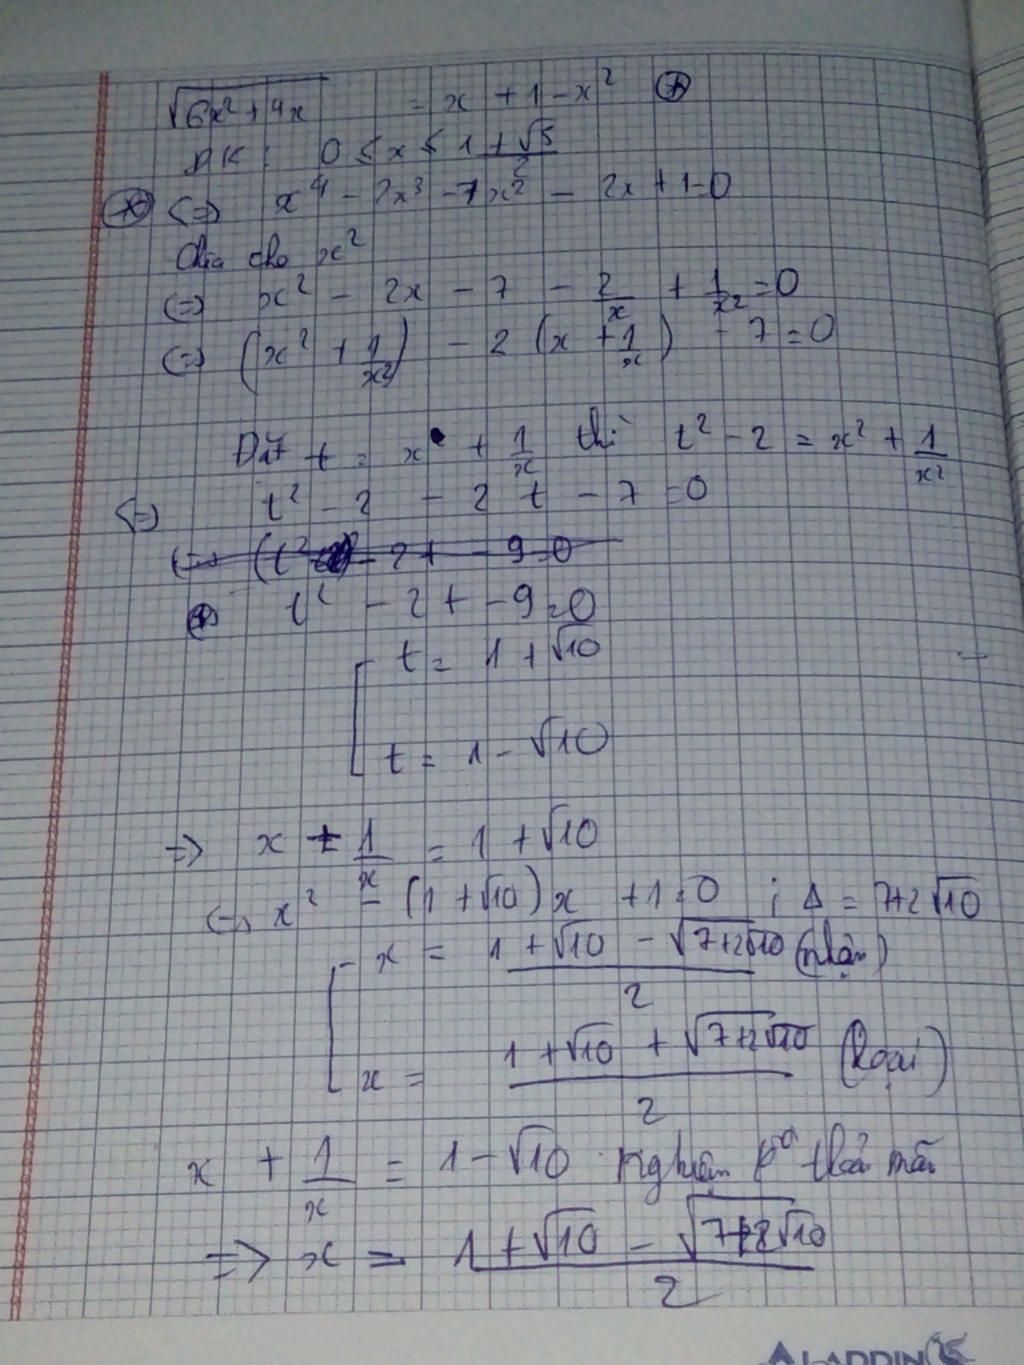 √(6x² + 4x) = x + 1 - x² (*)
ĐK: 0 ≤ x ≤ (1 + √5)/2
(*) (=) x⁴ - 2x³ - 7x² - 2x + 1 = 0
Chia cho x²
(=) x² - 2x - 7 - 2/x + 1/x² = 0
(=) (x² + 1/x²) - 2(x + 1/x) - 7 = 0
Đặt t = x + 1/x thì t² - 2 = x² + 1/x²
(=) t² - 2 - 2t - 7 = 0
t² - 2t - 9 = 0
t = 1 + √10
t = 1 - √10
=> x + 1/x = 1 + √10
(=) x² - (1 + √10)x + 1 = 0 ; Δ = 7+2√10
x = (1 + √10 - √(7+2√10))/2 (nhận)
x = (1 + √10 + √(7+2√10))/2 (loại)
x + 1/x = 1 - √10 Nghiệm k⁰ thỏa mãn
=> x = (1 + √10 - √(7+2√10))/2
ALADDIN